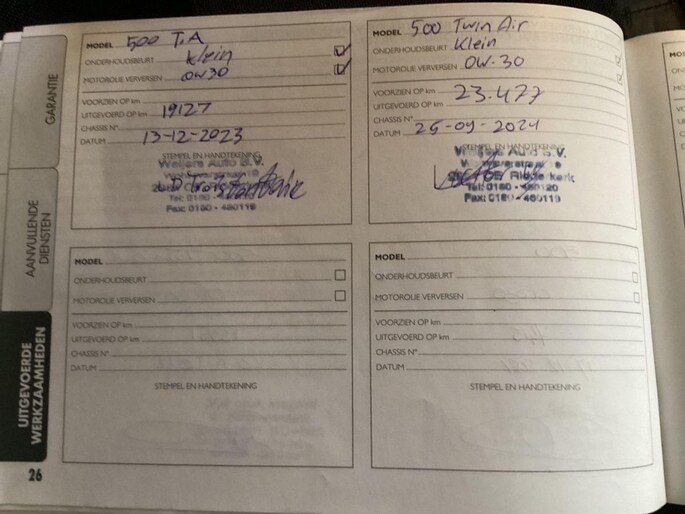 GARANTIE
AANVULLENDE
DIENSTEN
UITGEVOERDE
WERKZAAMHEDEN
26
MODEL 500 T.A
ONDERHOUDSBEURT Klein
MOTOROLIE VERVERSEN 0W30
VOORZIEN OP km
UITGEVOERD OP km 19127
CHASSIS N°
DATUM 13-12-2023
STEMPEL EN HANDTEKENING
Weijers Auto B.V.
Tel: 0180 -
Fax: 0180 - 480119
MODEL 500 Twin Air
ONDERHOUDSBEURT Klein
MOTOROLIE VERVERSEN 0W-30
VOORZIEN OP km
UITGEVOERD OP km 23.477
CHASSIS N°
DATUM 25-09-2024
STEMPEL EN HANDTEKENING
Weijers Auto B.V.
Ridderkerk
Tel: 0180 - 480120
Fax: 0180 - 480119
MODEL
ONDERHOUDSBEURT
MOTOROLIE VERVERSEN
VOORZIEN OP km
UITGEVOERD OP km
CHASSIS N°
DATUM
STEMPEL EN HANDTEKENING
MODEL
ONDERHOUDSBEURT
MOTOROLIE VERVERSEN
VOORZIEN OP km
UITGEVOERD OP km
CHASSIS N°
DATUM
STEMPEL EN HANDTEKENING